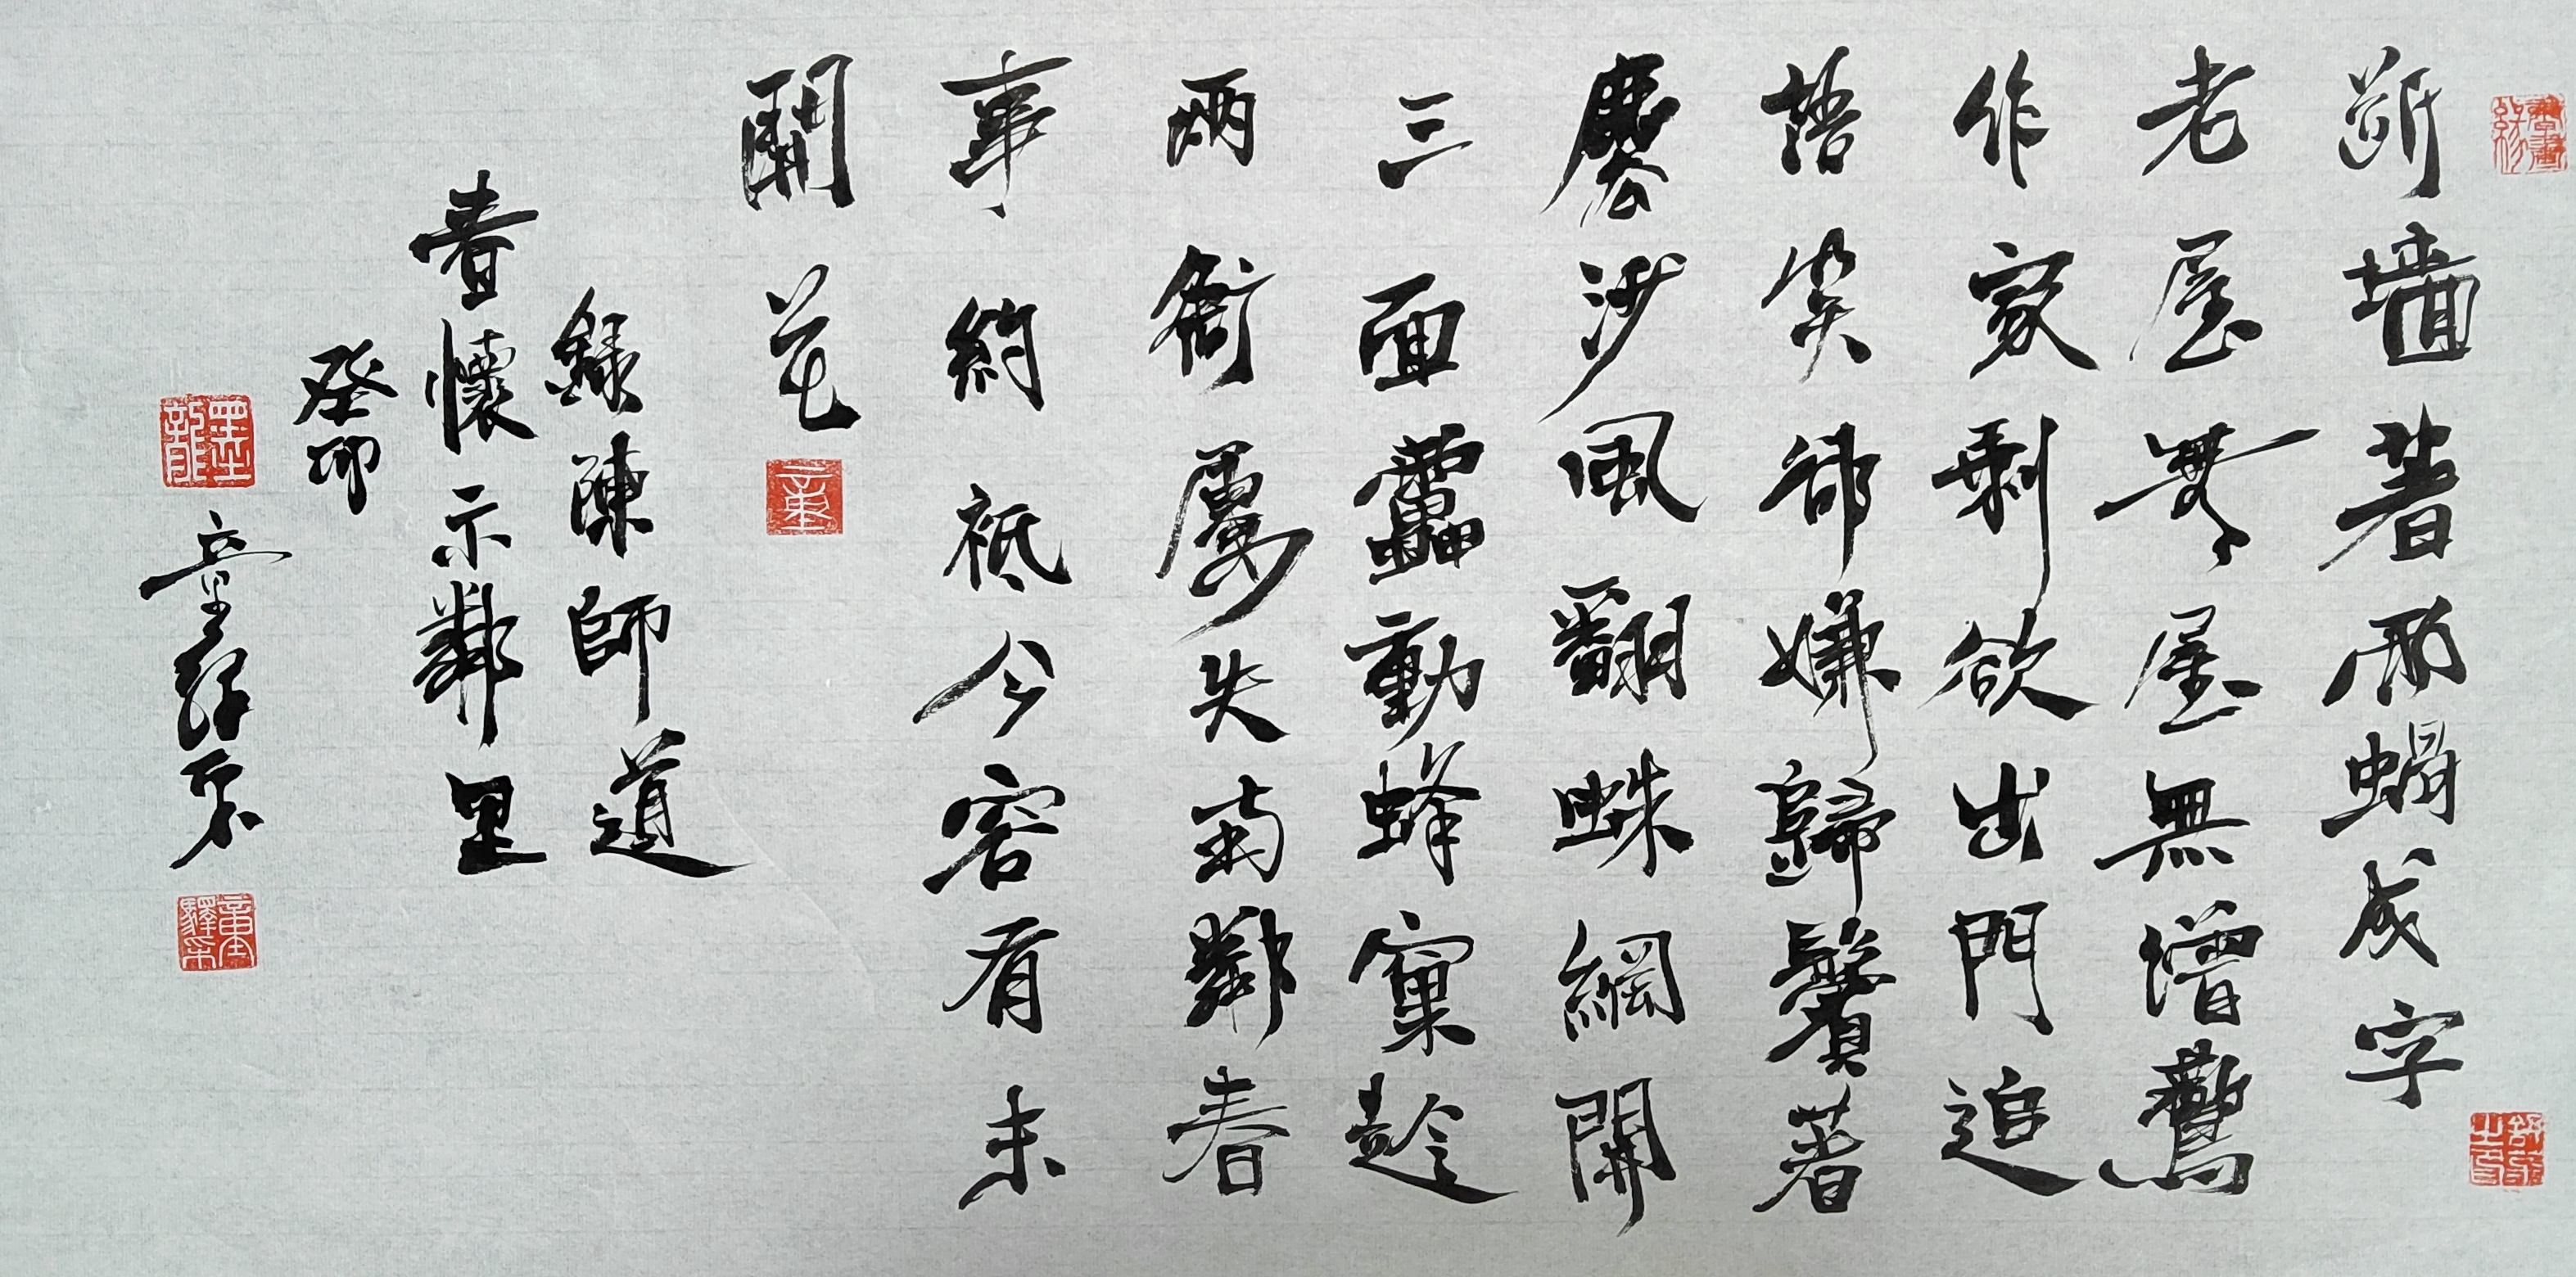 書畫緣
斷墙著雨蝸成字
老屋無屋無僧鷰
作家剩欲出門追
語笑却嫌歸鬢著
塵沙風翻蛛網開
三面靁動蜂窠趁
兩衙屢失南鄰春
事約祗今容有未
開花
童
錄陳師道
春懷示鄰里
癸卯
墨龍
童驛采
童驛采